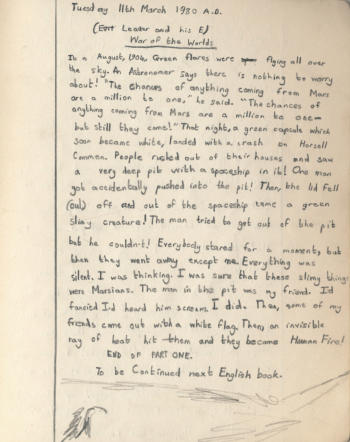 Tuesday 11th March 1980 A.D.
(Evil Leader and his E)
War of the Worlds
In a August, 1904, Green flares were flying all over
the sky. An Astronomer says there is nothing to worry
about! "The chances of anything coming from Mars
are a million to one," he said. "The chances of
anything coming from Mars are a million to one–
but still they come!" That night, a green capsule which
soon became white, landed with a crash on Horsell
Common. People rushed out of their houses and saw
a very deep pit with a spaceship in it! One man
got accidentally pushed into the pit! Then, the lid fell
(out) off and out of the spaceship came a green
slimy creature! The man tried to get out of the pit
but he couldn't! Everybody stared for a moments, but
then they went away except me. Everything was
silent. I was thinking. I was sure that these slimy things
were Marsians. The man in the pit was my friend. I'd
fancied I'd heard him scream. I did. Then, some of my
freinds came out with a white flag. Then, an invisible
ray of heat hit them and they became Human Fire!
END OF PART ONE.
To be Continued next English book.